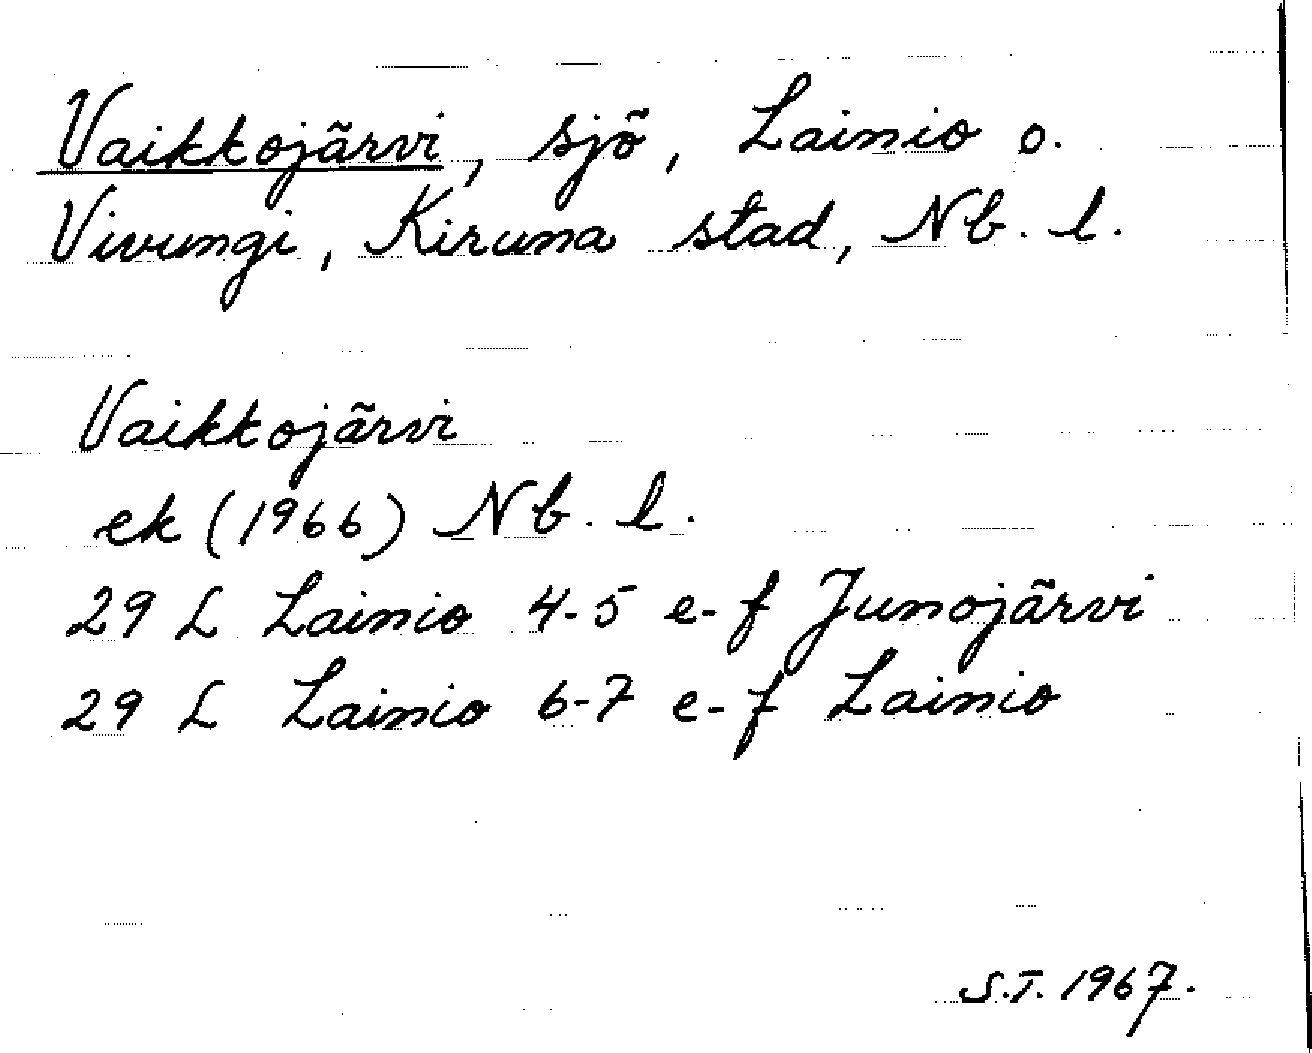 Vaikkojärvi, sjö, Lainio o.
Vivungi, Kiruna stad, Nb. l.
Vaikkojärvi
ek (1966) Nb. l.
29 L Lainio 4-5 e-f Junojärvi
29 L Lainio 6-7 e-f Lainio
S.T. 1967.